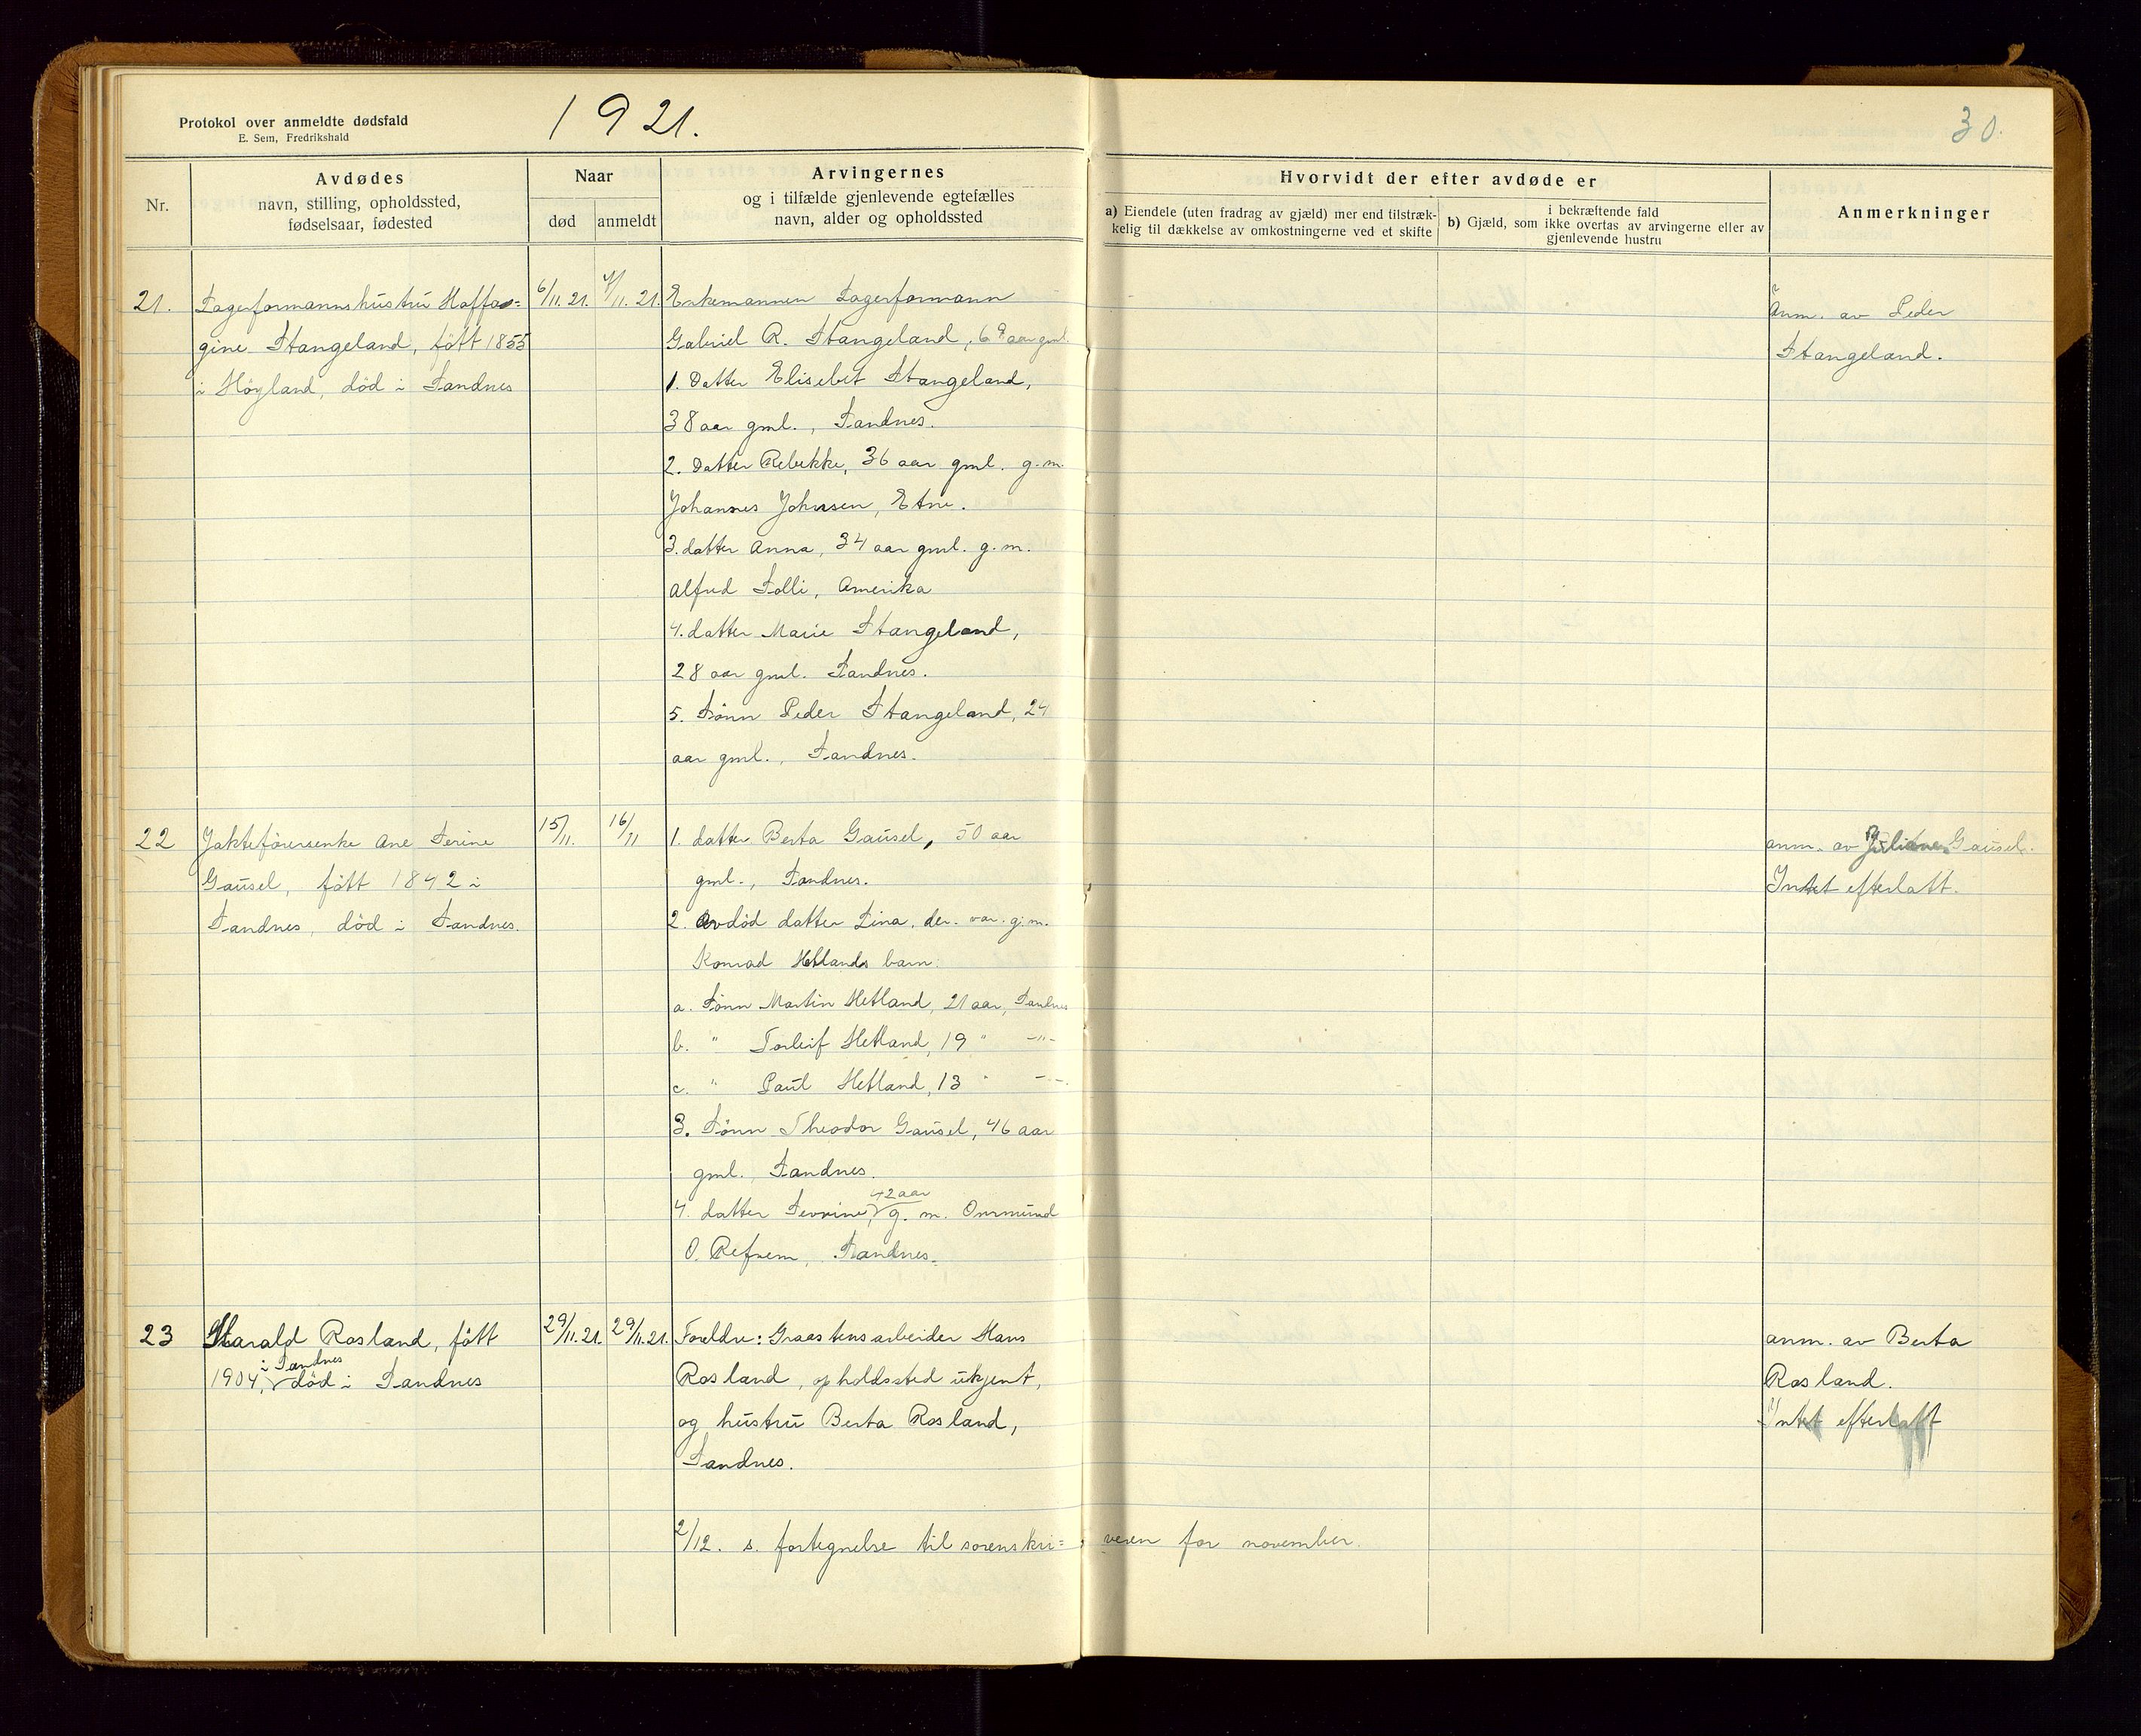 Protokol over anmeldte dødsfald
E. Sem, Fredrikshald
1921.
30.
Nr.
Avdødes
navn, stilling, opholdssted,
fødselsaar, fødested
Naar
død
anmeldt
Arvingernes
og i tilfælde gjenlevende egtefælles
navn, alder og opholdssted
Hvorvidt der efter avdøde er
a) Eiendele (uten fradrag av gjæld) mer end tilstræk-
kelig til dækkelse av omkostningerne ved et skifte
i bekræftende fald
b) Gjæld, som ikke overtas av arvingerne eller av
gjenlevende hustru
Anmerkninger
21.
Lagerformannshustru Haffa=
gine Stangeland, född 1855
i Höyland, död i Sandnes
6/11.21.
/11.21.
Enkemannen Lagerformann
Gabriel R. Stangeland, 69 aar gml.
1. Datter Elisebet Stangeland,
38 aar gml., Sandnes.
2. Datter Rebekke, 36 aar gml. g.m.
Johannes Johnsen, Etne.
3. datter Anna, 34 aar gml. g.m.
Alfred Solli, Amerika
4. datter Marie Stangeland,
28 aar gml. Sandnes.
5. Sönn Peder Stangeland, 24
aar gml., Sandnes.
Anm. av Peder
Stangeland.
22
Jakteförerenke Ane Serine
Gausel, fött 1842 i
Sandnes, död i Sandnes.
15/11.
16/11
1. datter Berta Gausel, 50 aar
gml., Sandnes.
2. Avdöd datter Sina, der var g.m.
Konrad Hetlands barn:
a. Sönn Martin Hetland, 21 aar, Sandnes
b. " Torleif Hetland, 19 " -"-
c. " Paul Hetland, 13 " -"-
3. Sönn Theodor Gausel, 46 aar
gml. Sandnes.
42 aar
4. datter Severine, g. m. Ommund
O. Refnem, Sandnes.
anm. av Juliane Gausel.
Intet efterlatt.
23
Harald Rosland, fött
i Sandnes
1904, död i Sandnes
29/11.21.
29/11.21.
Foreldre: Graastensarbeider Hans
Rosland, opholdssted ukjent,
og hustru Berta Rosland,
Sandnes.
anm. av Berta
Rosland.
Intet efterlatt
2/12. s. fortegnelse til sorenskri= veren for november.